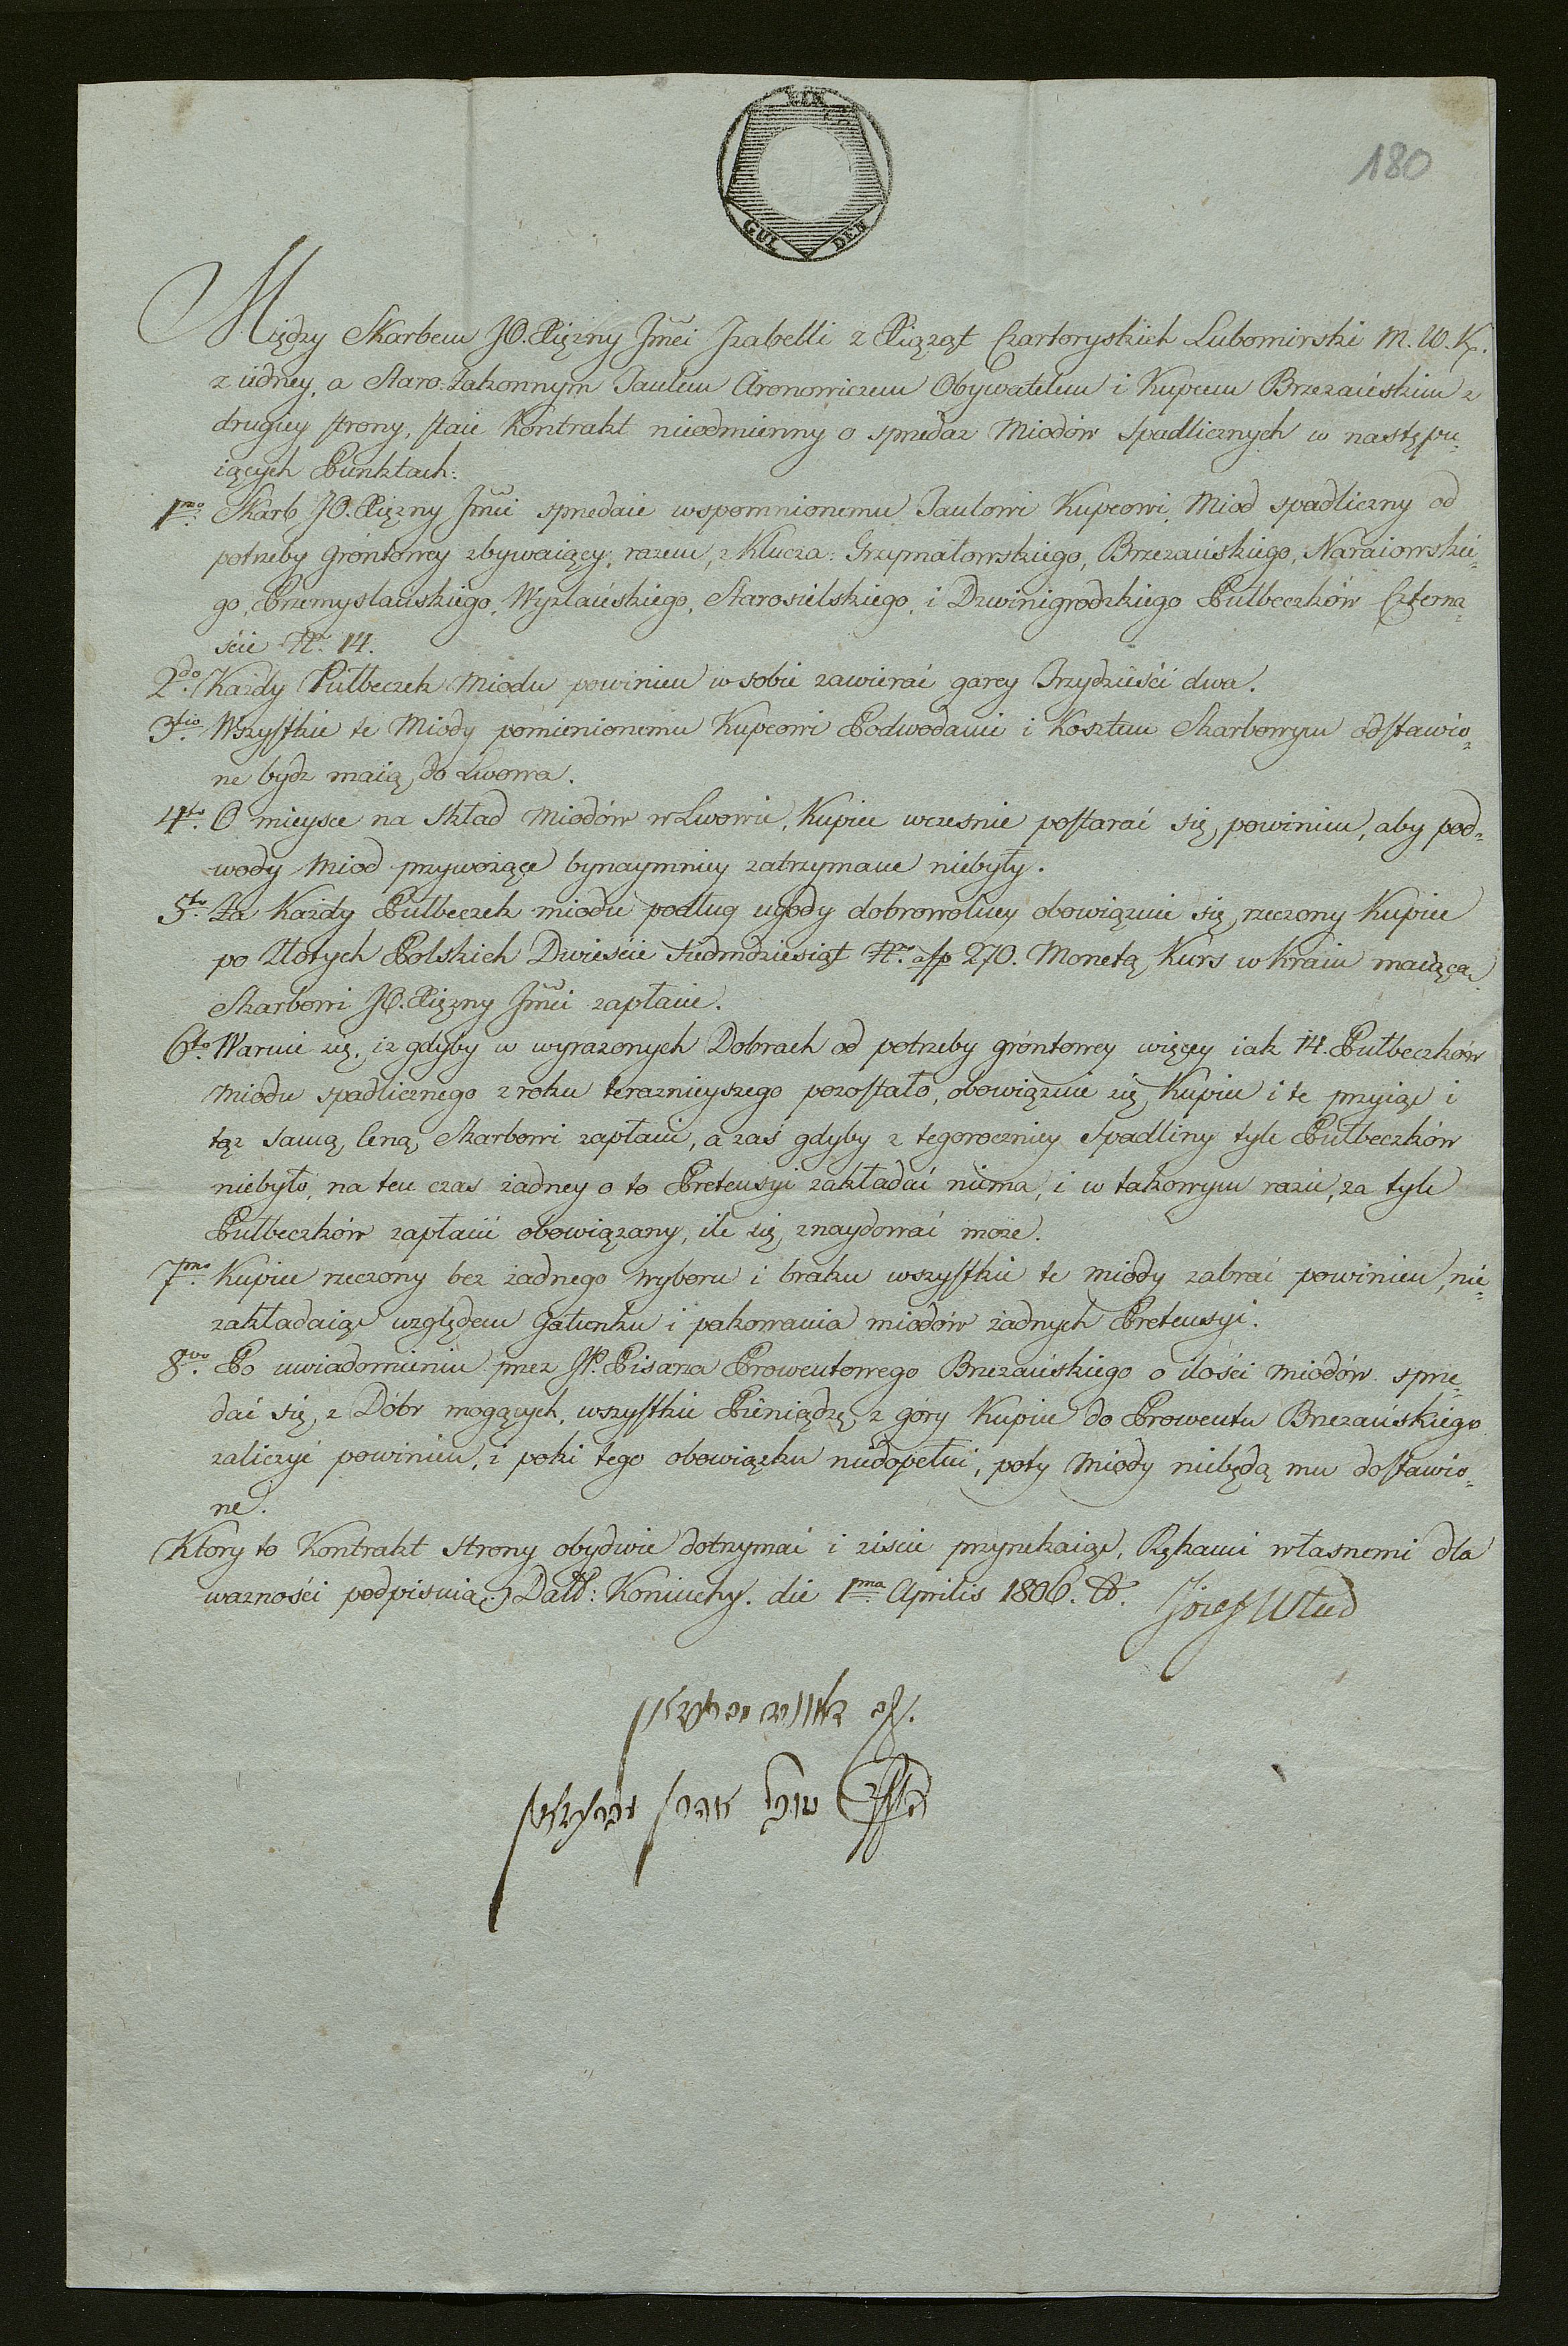 EIN
GUL DEN
180
Między Skarbem JO. Xiężny Jmci Izabelli z Xiążąt Czartoryskich Lubomirski M. W. K.
z iedney, a Staro-Zakonnym Saulem Aronowiczem Obywatelem i Kupcem Brzezańskim z
drugiey strony, staie Kontrakt nieodmienny o sprzedaz Miodów Spadlicznych w następu-
iących Punktach:
1mo. Skarb JO. Xiężny Jmci sprzedaie wspomnionemu Saulowi Kupcowi Miod spadliczny od
potrzeby gróntowey zbywaiący, razem, z Klucza: Grzymałowskiego, Brzezańskiego, Naraiowskie-
go, Przemyslańskiego, Wyzlańskiego, Starosielskiego, i Dzwinigrodzkiego Pułbeczków Czterna-
ście Nr. 14.
2do. Każdy Pułbeczek Miodu powinien w sobie zawierać garcy Trzydzieści dwa.
3tio. Wszystkie te Miody pomienionemu Kupcowi Podwodami i Kosztem Skarbowym odstawio-
ne bydz maią do Lwowa.
4to. O mieysce na Skład Miodów w Lwowie, Kupiec wczesnie postarać się powinien, aby pod-
wody Miod przywożące bynaymniey zatrzymane niebyły.
5to. Za Każdy Pułbeczek miodu podług ugody dobrowolney obowiązuie się rzeczony Kupiec
po Złotych Polskich Dwieście Siedmdziesiąt Nro. 270. Monetą Kurs w Kraiu maiącą
Skarbowi JO. Xiężny Jmci zapłacić.
6to. Waruie się, iz gdyby w wyrazonych Dobrach od potrzeby gróntowey więcey iak 14. Pułbeczków
Miodu spadlicznego z roku teraznieyszego pozostało, obowiązuie się Kupiec i te przyiąć i
tąz samą Ceną Skarbowi zapłacić, a zaś gdyby z tegoroczney Spadliny tyle Pułbeczków
niebyło, na ten czas żadney o to Pretensyi zakładać niema, i w takowym razie, za tyle
Pułbeczków zapłacić obowiązany, ile się znaydować może.
7mo. Kupiec rzeczony bez żadnego wyboru i braku wszystkie te miody zabrać powinien, nie-
zakładaiąc względem Gatunku i pakowania miodów żadnych Pretensyi.
8vo. Po uwiadomieniu przez JP. Pisarza Prowentowego Brzezańskiego o ilości miodów sprze-
dać się z Dóbr mogących, wszystkie Pieniądze z góry Kupiec do Prowentu Brzezańskiego
zaliczyć powinien, i poki tego obowiązku niedopełni, poty Miody niebędą mu dostawio-
ne.
Ktory to Kontrakt Strony obydwie dotrzymać i ziscić przyrzekaiąc, Rękami własnemi dla
wazności podpisuią. Datt: Koniuchy. die 1ma Aprilis 1806. Ao.